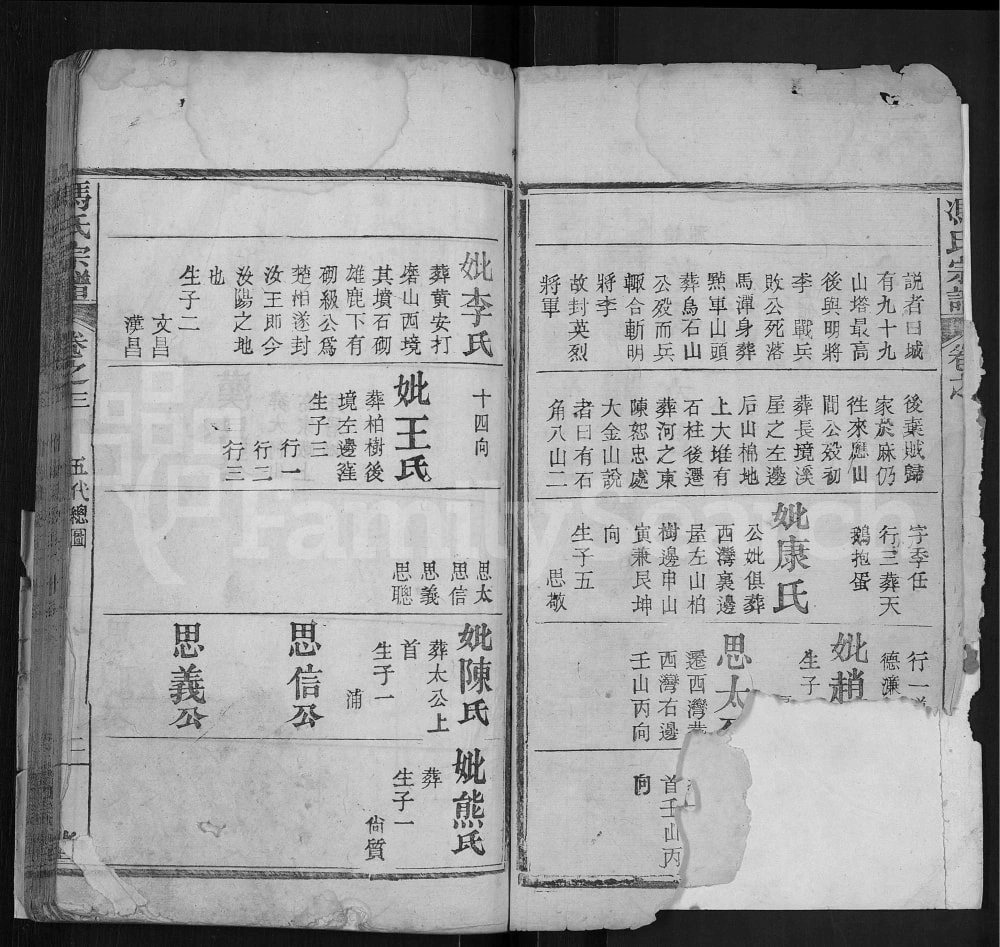 馮氏宗譜
卷之
説者曰城
有九十九
山塔最高
後與明將
李 戰兵
敗公死落
馬潭身葬
㸃軍山頭
葬烏石山
公殁而兵
輙合斬明
將李
故封英烈
將軍
後棄賊歸
家於麻仍
徃來應山
間公殁初
葬長境溪
屋之左邊
后山棉地
上大堆有
石柱後遷
葬河之東
陳恕忠處
大金山説
者曰有石
角八山二
字季任
行三葬天
鵝抱蛋
妣康氏
公妣俱葬
西灣裏邊
屋左山柏
樹邊申山
寅兼艮坤
向
生子五
思敬
行一
德濂
妣趙
生子
思太
遷西灣
西灣右邊
壬山丙向
首壬山丙
向
妣李氏
葬黄安打
磨山西境
其墳石砌
雄鹿下有
砌級公爲
楚相遂封
汝王即今
汝陽之地
也
生子二
文昌
漢昌
十四向
妣王氏
葬柏樹後
境左邊窪
生子三
行一
行二
行三
思太
思信
思義
思聰
妣陳氏
葬太公上
首
生子一
浦
思信公
思義公
妣熊氏
葬
生子一
尙質
馮氏宗譜
卷之三
五代總圖
二
FamilySearch